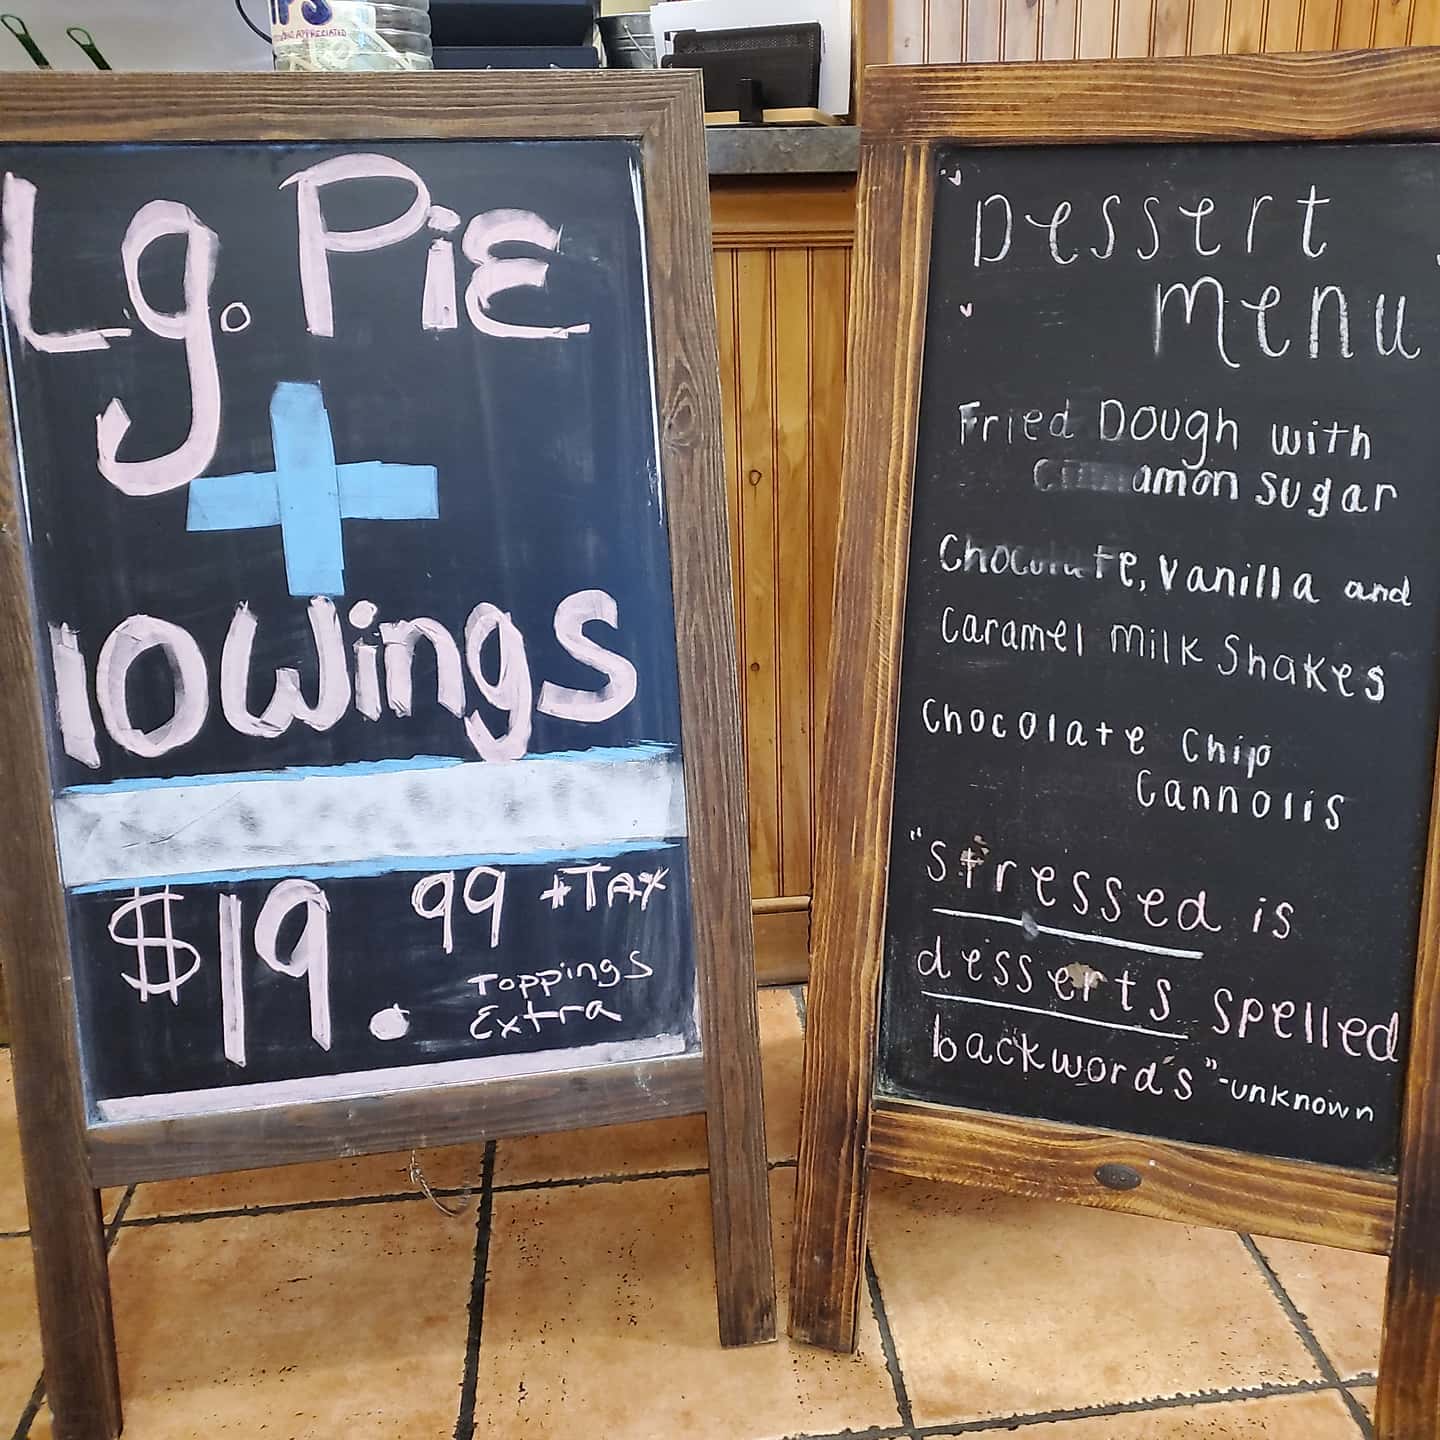 APPRECIATED
Lg. PiE
+
10 Wings
$19.99 +TAX
Toppings
Extra
Dessert
menu
Fried Dough with
Cinnamon sugar
Chocolate, Vanilla and
Caramel Milk Shakes
Chocolate Chip
Cannolis
"Stressed is
desserts spelled
backwords" -unknown